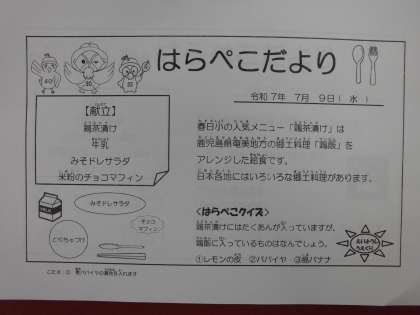 はらぺこだより
令和７年　７月　９日（水）
【献立】
鶏茶漬け
牛乳
みそドレサラダ
米粉のチョコマフィン
春日小の人気メニュー「鶏茶漬け」は
鹿児島県奄美地方の郷土料理「鶏飯」を
アレンジした給食です。
日本各地にはいろいろな郷土料理があります。
みそドレサラダ
チョコ
マフィン
とりちゃづけ
<はらぺこクイズ>
鶏茶漬けにはたくあんが入っていますが、
鶏飯に入っているものはなんでしょう。
①レモンの皮　②パパイヤ　③島バナナ